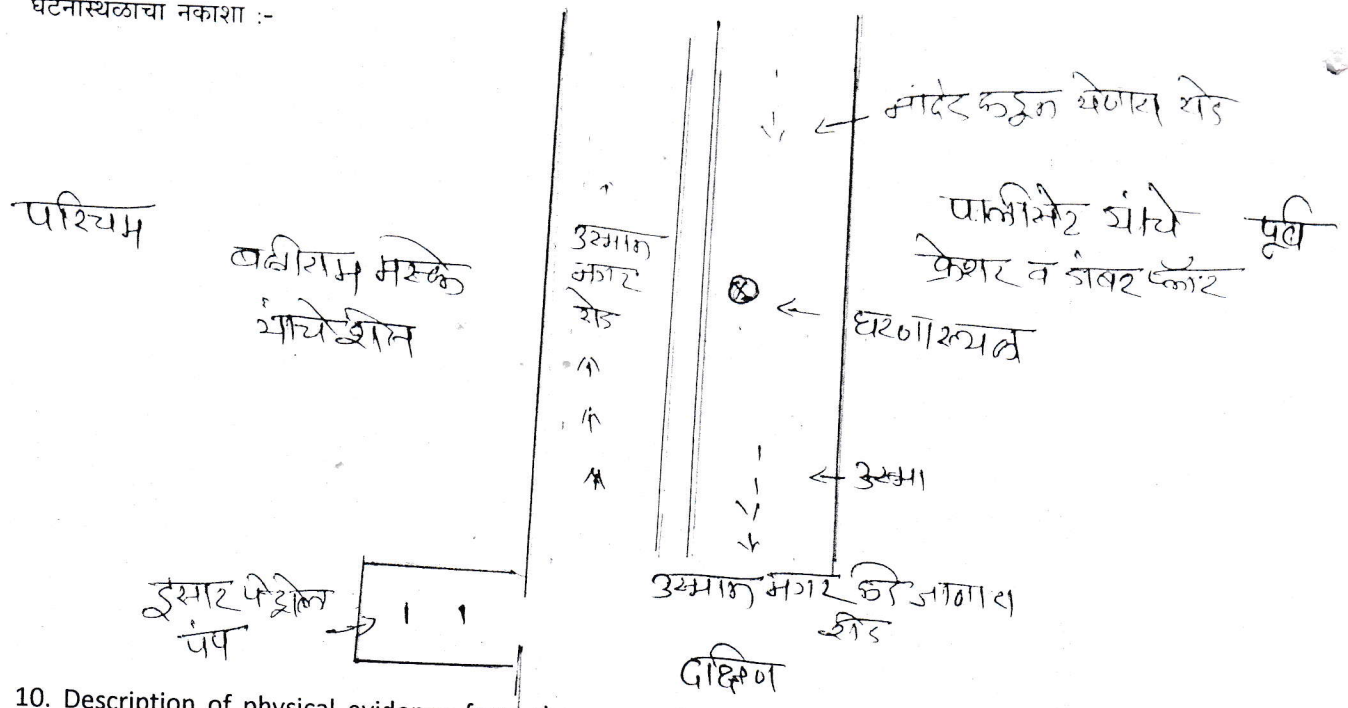 घटनास्थळाचा नकाशा :-
नांदेड कडून येणारा रोड
पश्चिम
बळीराम मस्के
यांचे शेत
उस्मान
नगर
रोड
पालीमेर यांचे
क्रेशर व डांबर प्लॉट
पूर्व
घटनास्थळ
उस्मा
इसार पेट्रोल
पंप
उस्मान नगर कडे जाणारा
रोड
दक्षिण
10. Description of physical evidence